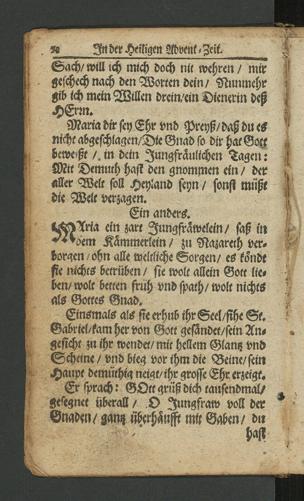 In der Heiligen Advent-Zeit.
Sach/ will ich mich doch nit wehren/ mir
geschech nach den Worten dein/ Nunmehr
gib ich mein Willen drein/ ein Dienerin deß
HErrn.
Maria dir sey Ehr vnd Preyß/ daß du es
nicht abgeschlagen/ Die Gnad so dir hat Gott
beweißt/ in dein Jungfräulichen Tagen:
Mit Demuth hast den gnommen ein/ der
aller Welt soll Heyland seyn/ sonst müßt
die Welt verzagen.
Ein anders.
MAria ein zart Jungfräwelein/ saß in
dem Kämmerlein/ zu Nazareth ver-
borgen/ ohn alle weltliche Sorgen/ es köndt
sie nichts betrüben/ sie wolt allein Gott lie-
ben/ wolt betten fruh vnd spath/ wolt nichts
als Gottes Gnad.
Einsmals als sie erhub ihr Seel/ sihe St.
Gabriel/ kam her von Gott gesändet/ sein An-
gesicht zu ihr wendet/ mit hellem Glantz vnd
Scheine/ vnd bieg vor ihm die Beine/ sein
Haupt demüthig neigt/ ihr grosse Ehr erzeigt.
Er sprach: GOtt grüß dich tausendmal/
gesegnet überall/ O Jungfraw voll der
Gnaden/ gantz überhäufft mit Gaben/ du
hast